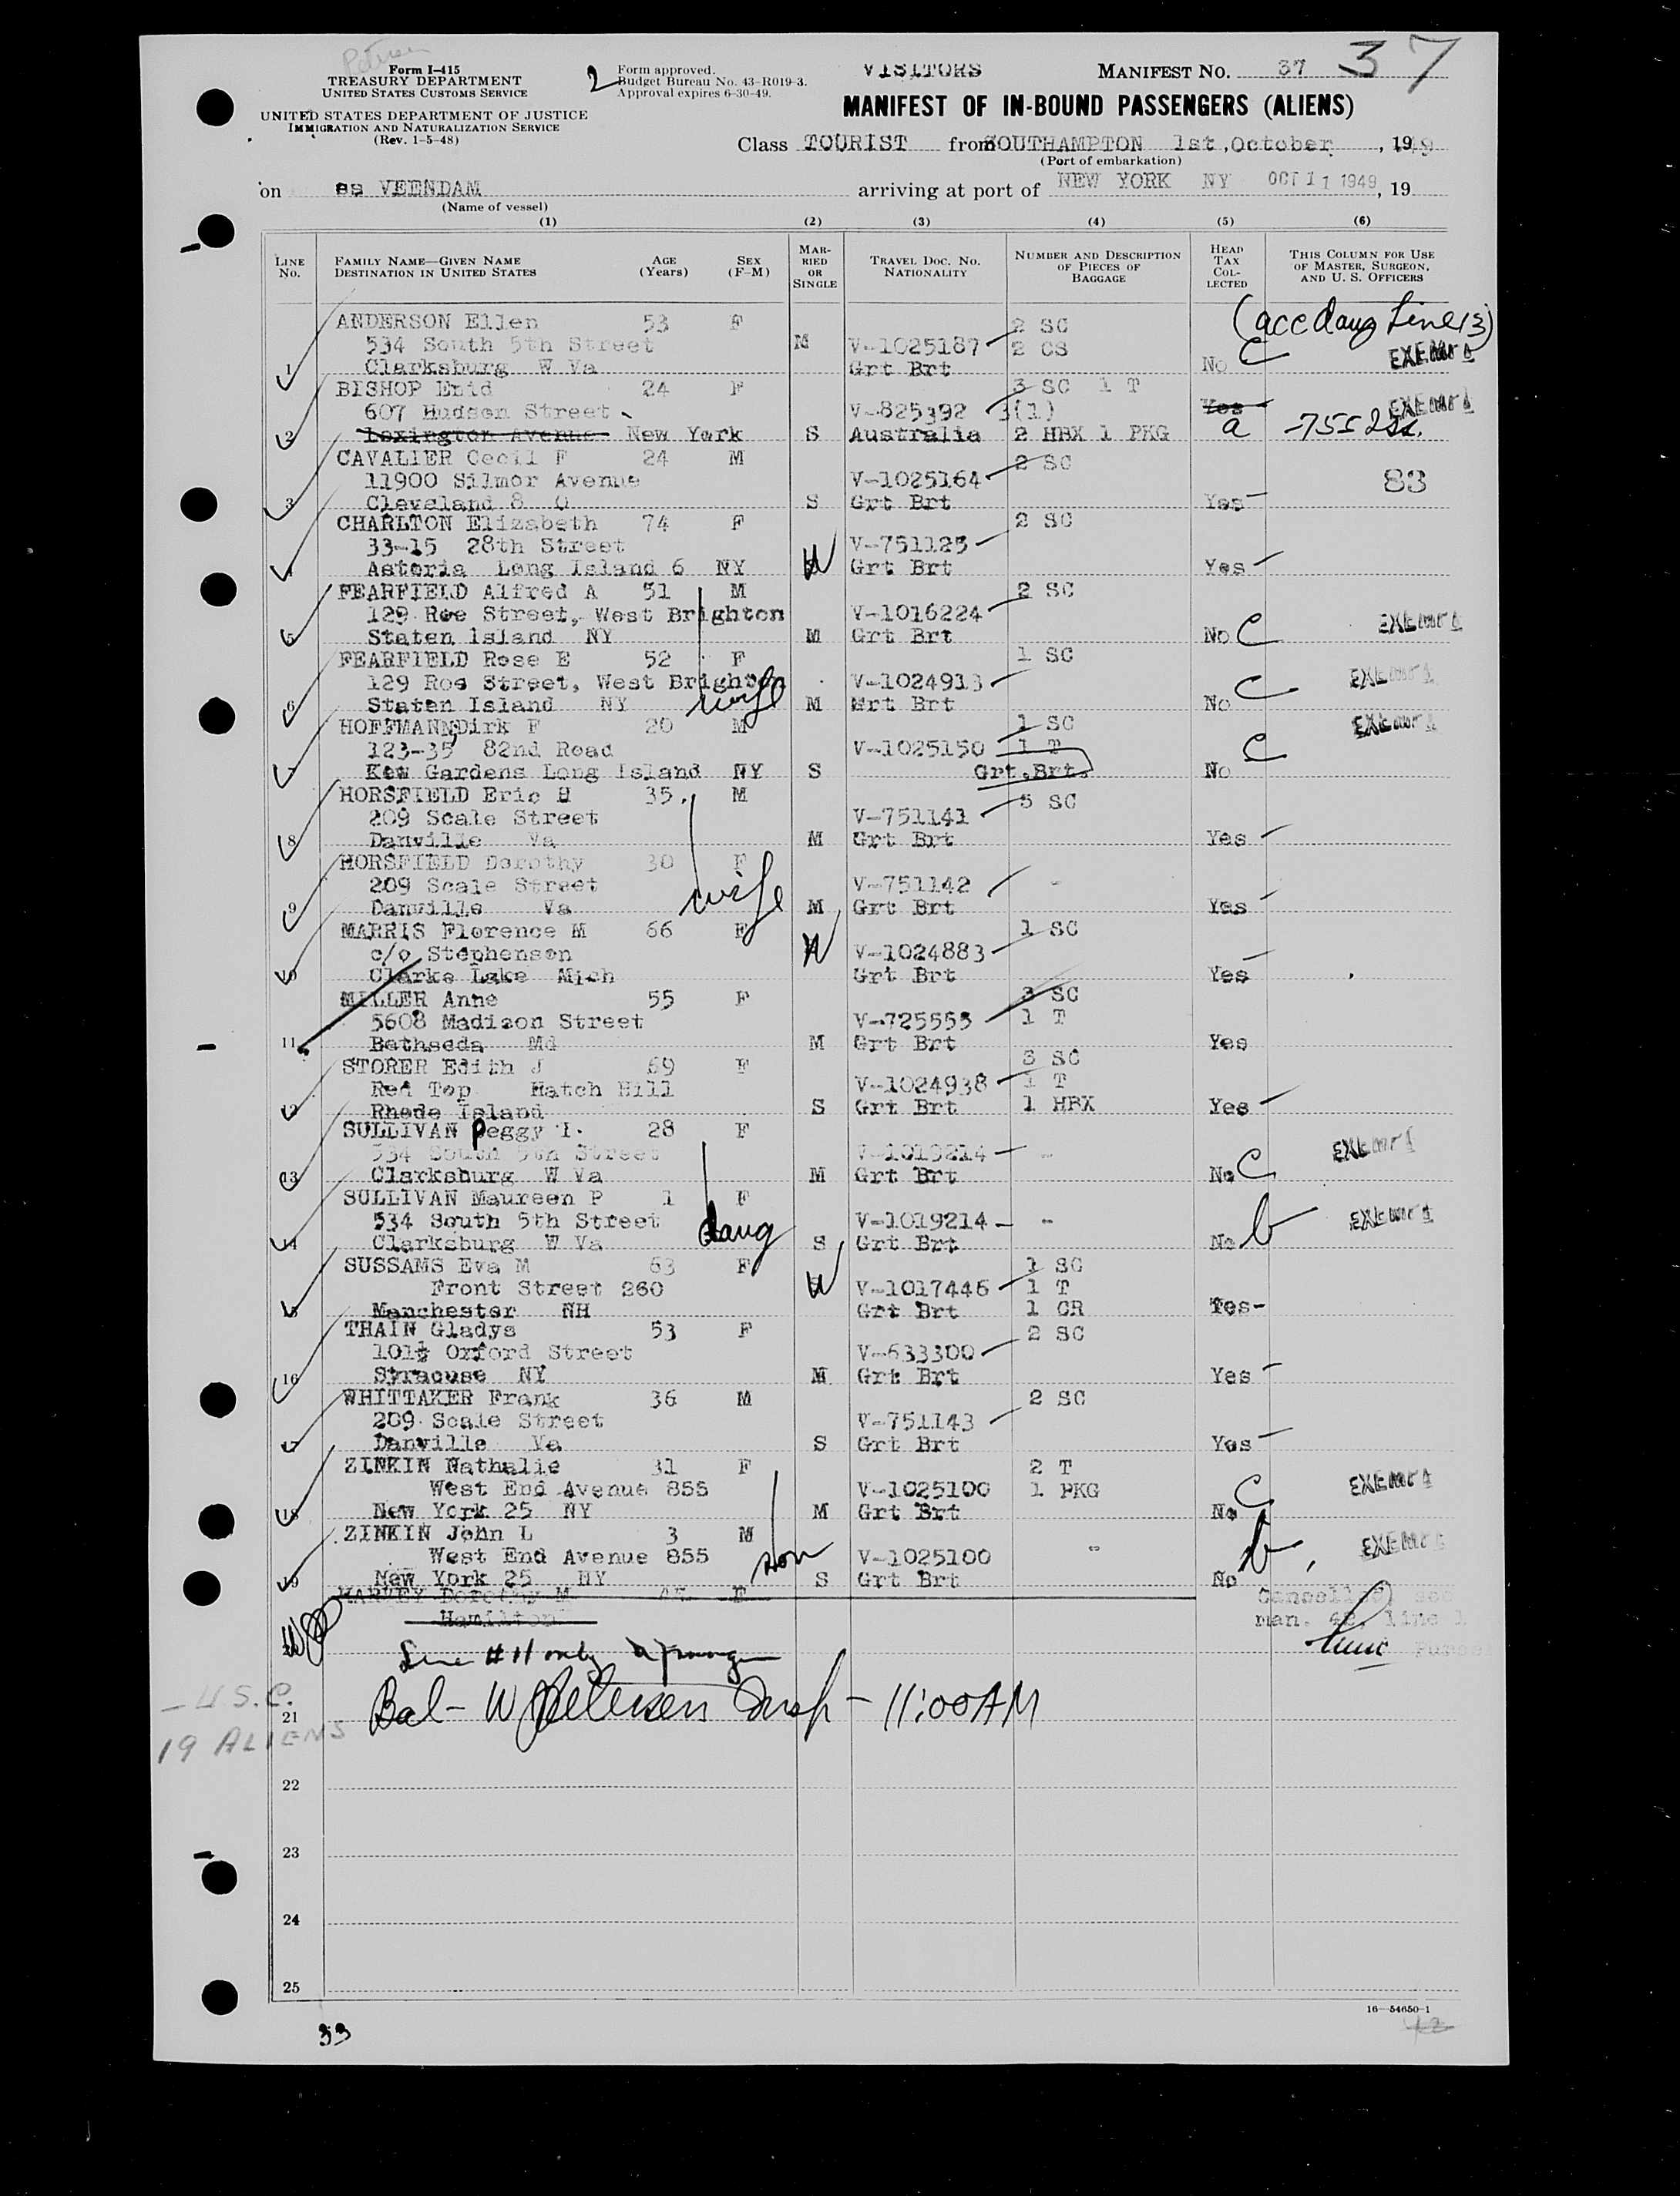 Form I-415
TREASURY DEPARTMENT
UNITED STATES CUSTOMS SERVICE
UNITED STATES DEPARTMENT OF JUSTICE
IMMIGRATION AND NATURALIZATION SERVICE
(Rev. 1-5-48)
2
Form approved.
Budget Bureau No. 43-R019-3.
Approval expires 6-30-49.
VISITORS
MANIFEST NO. 37 37
MANIFEST OF IN-BOUND PASSENGERS (ALIENS)
Class TOURIST from SOUTHAMPTON 1st,October, 1949
(Port of embarkation)
on ss VEENDAM arriving at port of NEW YORK NY OCT 11 1949, 19
(Name of vessel)
(1) (2) (3) (4) (5) (6)
LINE No.
FAMILY NAME—GIVEN NAME
DESTINATION IN UNITED STATES
AGE (Years)
SEX (F-M)
MAR-RIED OR SINGLE
TRAVEL DOC. NO.
NATIONALITY
NUMBER AND DESCRIPTION OF PIECES OF BAGGAGE
HEAD TAX COL-LECTED
THIS COLUMN FOR USE OF MASTER, SURGEON, AND U. S. OFFICERS
ANDERSON Ellen 53 F 2 SC (acc daug Line 13)
534 South 5th Street M V-1025187 2 CS
1 Clarksburg W Va Grt Brt No C EXEMPT
BISHOP Enid 24 F 3 SC 1 T
607 Hudson Street V-825392 3(1) Yes EXEMPT
2 Lexington Avenue New York S Australia 2 HBX 1 PKG a
CAVALIER Cecil F 24 M 2 SC
11900 Silmor Avenue V-1025164 83
3 Cleveland 8 O S Grt Brt Yes
CHARLTON Elizabeth 74 F 2 SC
33-15 28th Street V-751125
4 Astoria Long Island 6 NY W Grt Brt Yes
FEARFIELD Alfred A 51 M 2 SC
129 Roe Street, West Brighton V-1016224
5 Staten Island NY M Grt Brt No C EXEMPT
FEARFIELD Rose E 52 F 1 SC
129 Roe Street, West Brighton V-1024913
6 Staten Island NY wife M Grt Brt No C EXEMPT
HOFFMANN,Dirk F 20 M 1 SC
123-35 82nd Road V-1025150 1 T
7 Kew Gardens Long Island NY S Grt.Brt. No C EXEMPT
HORSFIELD Eric H 35 M 5 SC
209 Scale Street V-751141
8 Danville Va M Grt Brt Yes
HORSFIELD Dorothy 30 F
209 Scale Street V-751142 -
9 Danville Va wife M Grt Brt Yes
MARRIS Florence M 66 F 1 SC
c/o Stephenson W V-1024883
10 Clarke Lake Mich Grt Brt Yes
MILLER Anne 55 F 3 SC
5608 Madison Street V-725555 1 T
11 Bethseda Md M Grt Brt Yes
STORER Edith J 69 F 3 SC
Red Top Hatch Hill V-1024938 1 T
12 Rhode Island S Grt Brt 1 HBX Yes
SULLIVAN Peggy I. 28 F
534 South 5th Street V-1019214 -
13 Clarksburg W Va M Grt Brt No C EXEMPT
SULLIVAN Maureen P 1 F
534 South 5th Street V-1019214 -
14 Clarksburg W Va daug S Grt Brt No b EXEMPT
SUSSAMS Eva M 63 F 1 SC
Front Street 260 W V-1017446 1 T
15 Manchester NH Grt Brt 1 CR Yes-
TRAIN Gladys 53 F 2 SC
101½ Oxford Street V-633300
16 Syracuse NY M Grt Brt Yes
WHITTAKER Frank 36 M 2 SC
209 Scale Street V-751143
17 Danville Va S Grt Brt Yes
ZINKIN Nathalie 31 F 2 T
West End Avenue 855 V-1025100 1 PKG
18 New York 25 NY M Grt Brt No C EXEMPT
ZINKIN John L 3 M
West End Avenue 855 V-1025100 -
19 New York 25 NY son S Grt Brt No b EXEMPT
HARVEY Dorothy M F Cancelled see
Hamilton man. 42, line 1
Line # 11 only
- U.S.C.
19 ALIENS
21 Bal- W Petersen Insp - 11:00 AM
22
23
24
25
16—54650-1
33
42